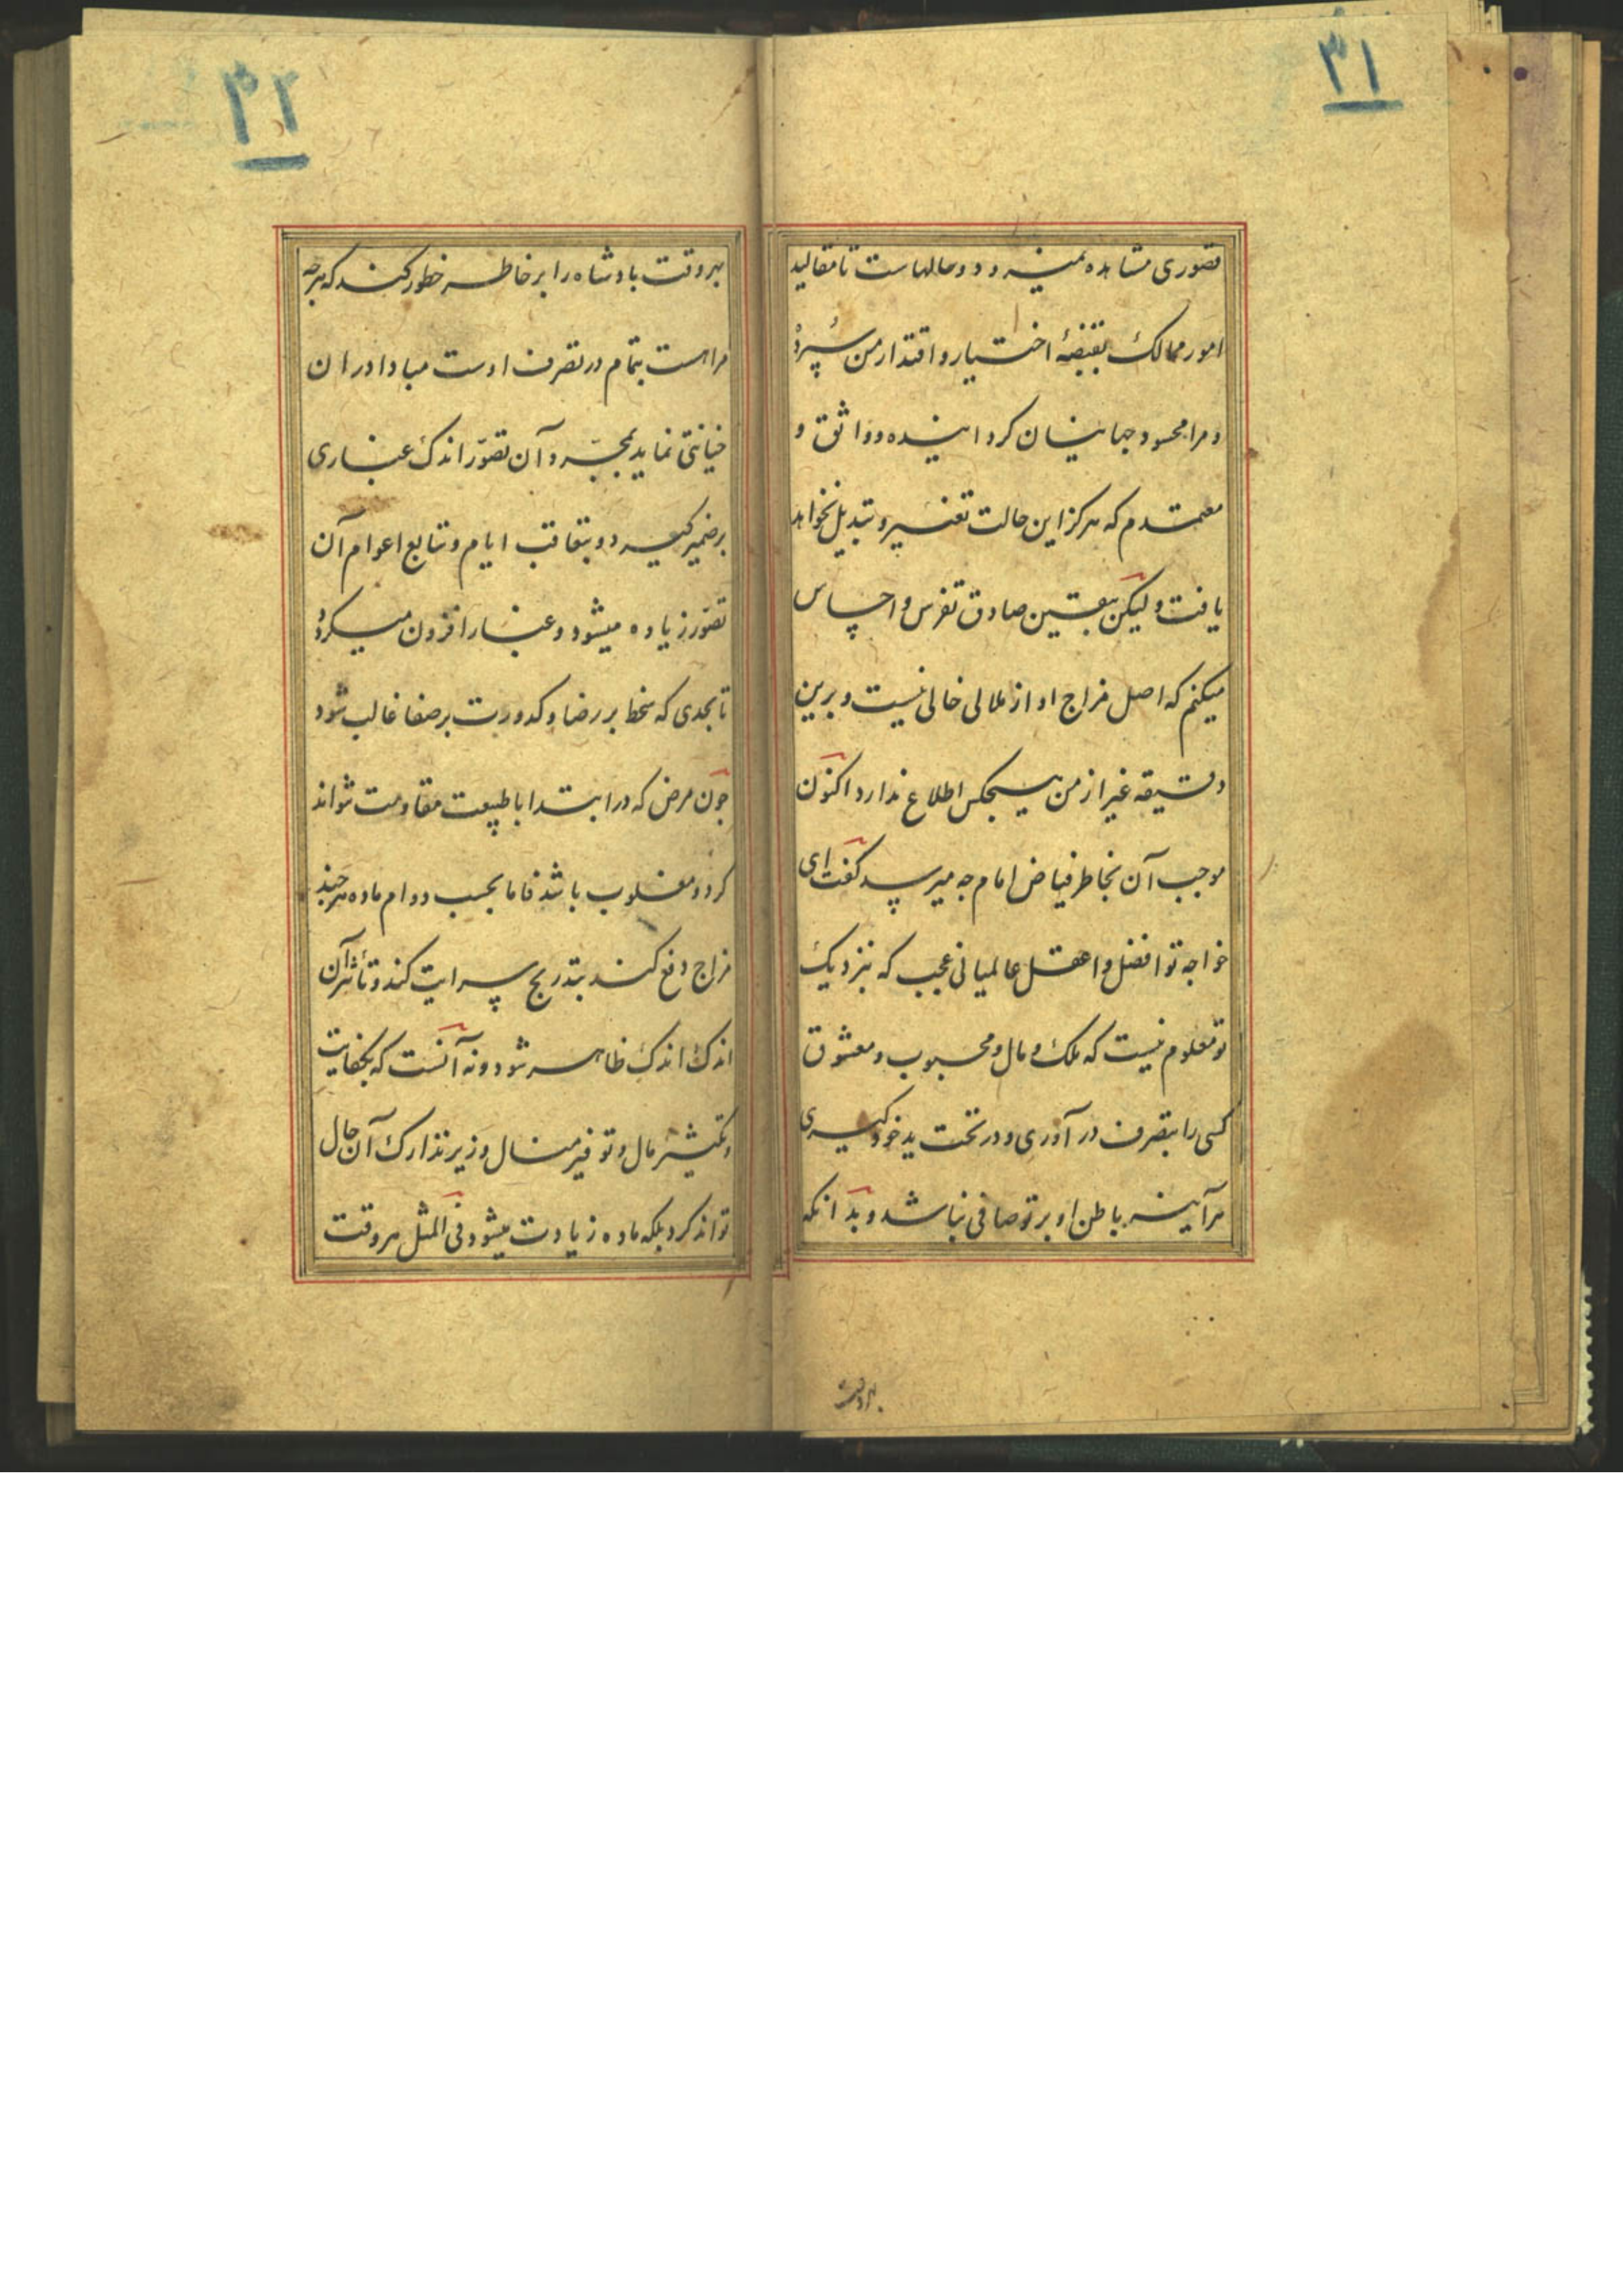 ۳۱
قصوری مشاهده نمیرود و سالهاست تا مقالید
امور ممالک بقبضهٔ اختیار و اقتدار من سپرده
و مرا محسود جهانیان کردانیده و واثق و
معتمدم که هرکز این حالت تغییر و تبدیل نخواهد
یافت ولیکن بیقین صادق تفرس و احساس
میکنم که اصل مزاج او از ملالی خالی نیست و برین
دقیقه غیر از من هیچکس اطلاع ندارد اکنون
موجب آن بخاطر فیاض امام چه میرسد کفت ای
خواجه تو افضل و اعقل عالمیانی عجب که بنزدیک
تو معلوم نیست که ملک و مال و محبوب و معشوق
کسی را بتصرف در آوری و در تحت ید خود کیری
هرآینه باطن او بر تو صافی نباشد و بدانکه
هروقت
۳۲
هروقت پادشاه را بر خاطر خطور کند که هرچه
مراست بتمام در تصرف اوست مبادا در ان
خیانتی نماید بمجرد آن تصوّر اندک غباری
بر ضمیر کیرد و بتعاقب ایام و تتابع اعوام آن
تصوّر زیاده میشود و غبار افزون میکردد
تا بحدی که سخط بر رضا و کدورت بر صفا غالب شود
چون مرض که در ابتدا با طبیعت مقاومت نتواند
کرد و مغلوب باشد فاما بحسب دوام ماده هرچند
مزاج دفع کند بتدریج سرایت کند و تأثیر آن
اندک اندک ظاهر شود و نه آنست که بکفایت
و تکثیر مال و توفیر منال وزیر تدارک آن حال
تواند کرد بلکه ماده زیادت میشود فی المثل هروقت